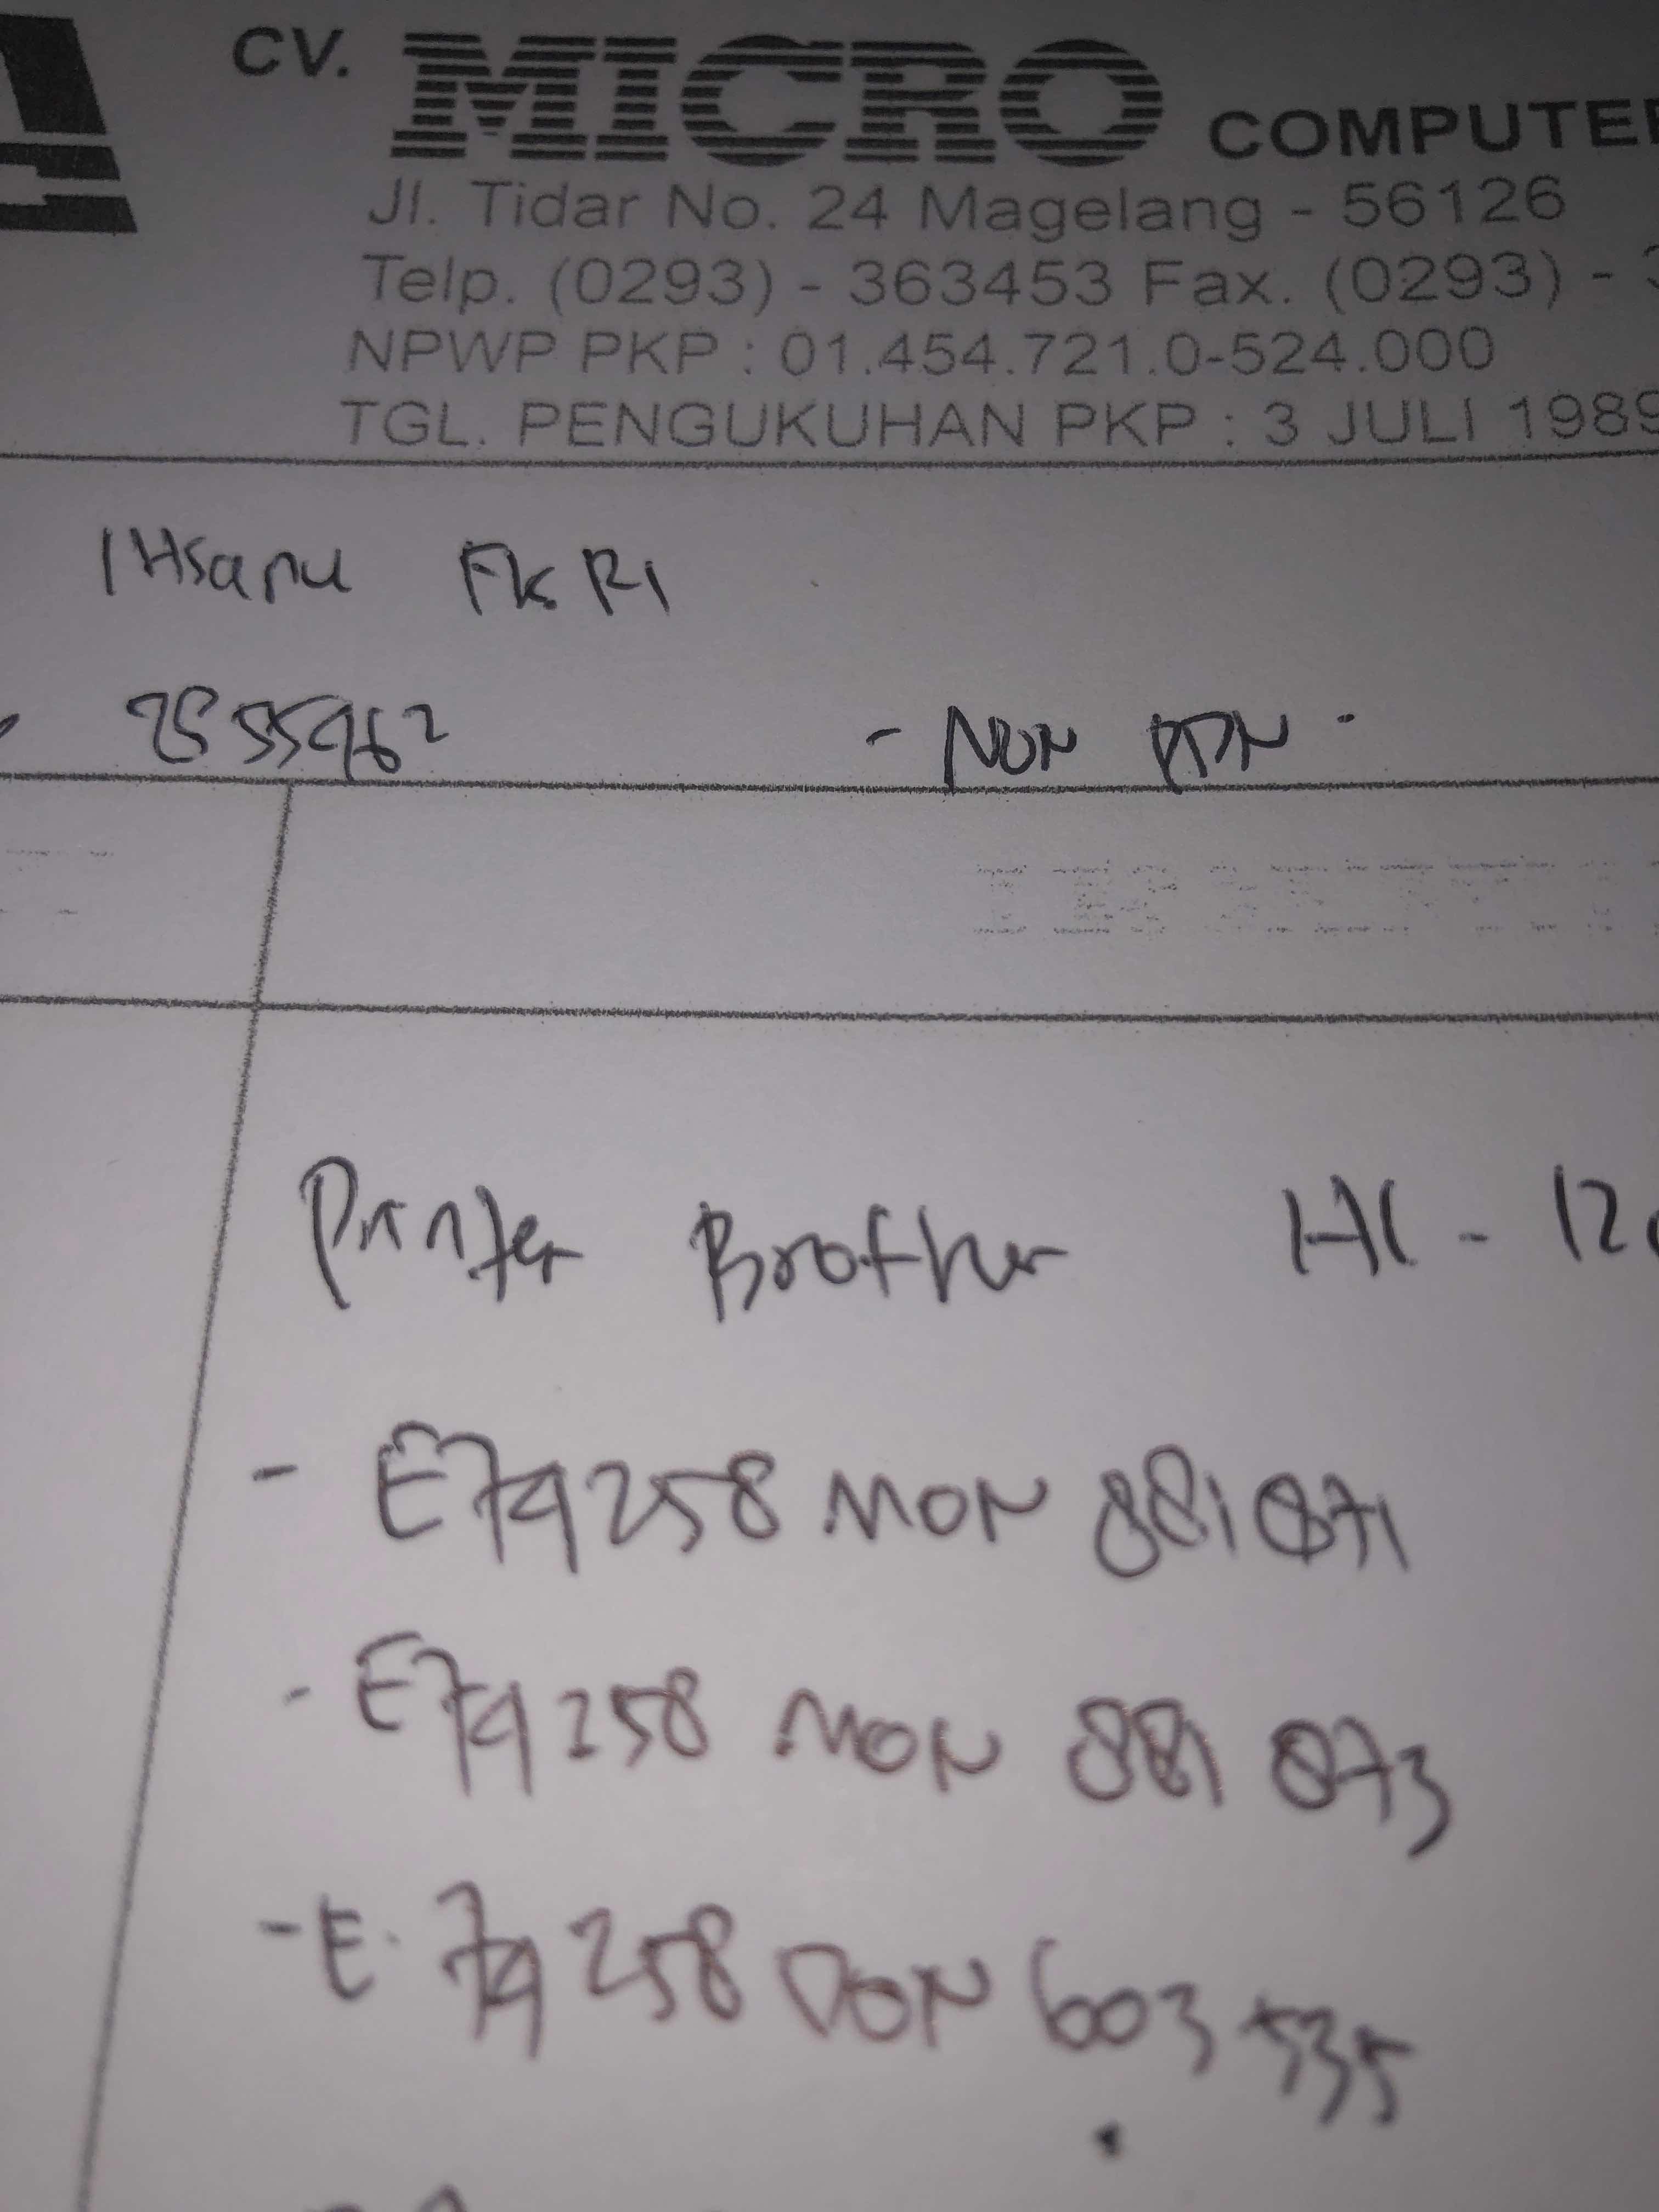 CV. MICRO COMPUTER
Jl. Tidar No. 24 Magelang - 56126
Telp. (0293) - 363453 Fax. (0293) -
NPWP PKP : 01.454.721.0-524.000
TGL. PENGUKUHAN PKP : 3 JULI 1989
IHsanu FkRI
2555962 - NON PPN -
Printer Brother HL - 12
- E74258 MON 881 871
- E74258 MON 881 873
- E. 74258 DON 603 535